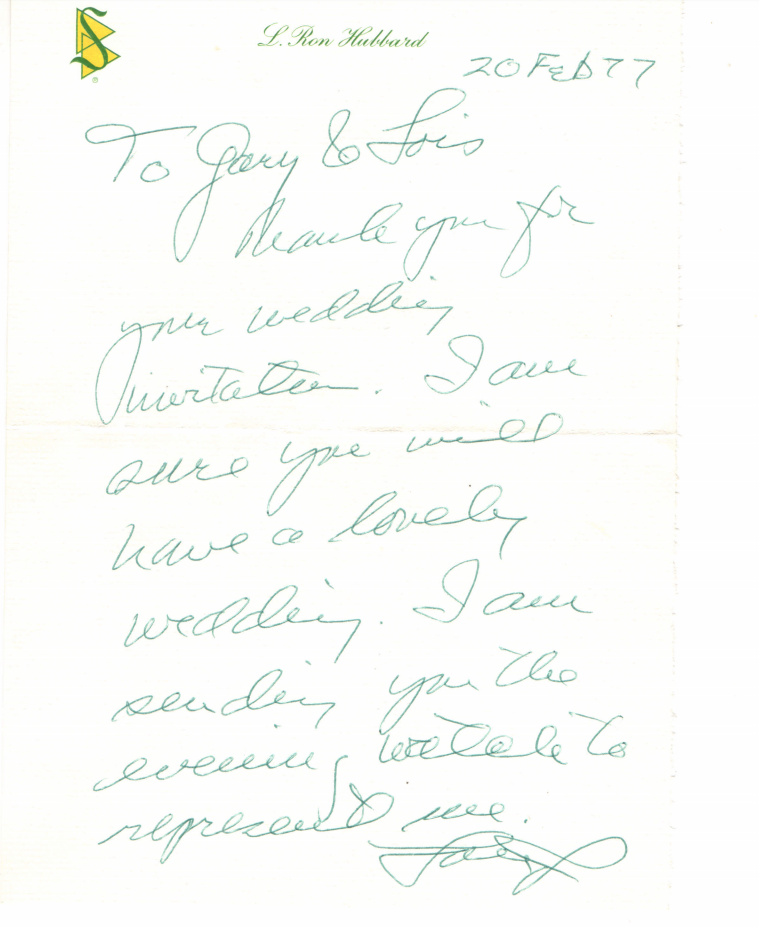 L. Ron Hubbard
20 Feb 77
®
To Gary & Lois
Thank you for
your wedding
invitation. I am
sure you will
have a lovely
wedding. I am
sending you the
evening to
represent me.